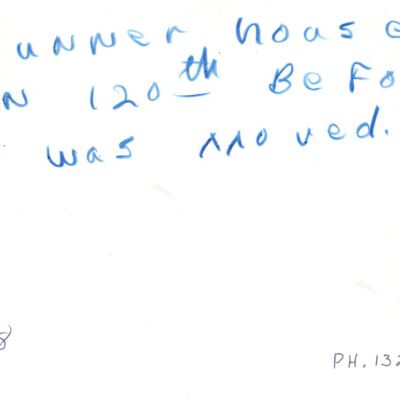 unner house
n 120th Befo
was moved.
8
PH. 132